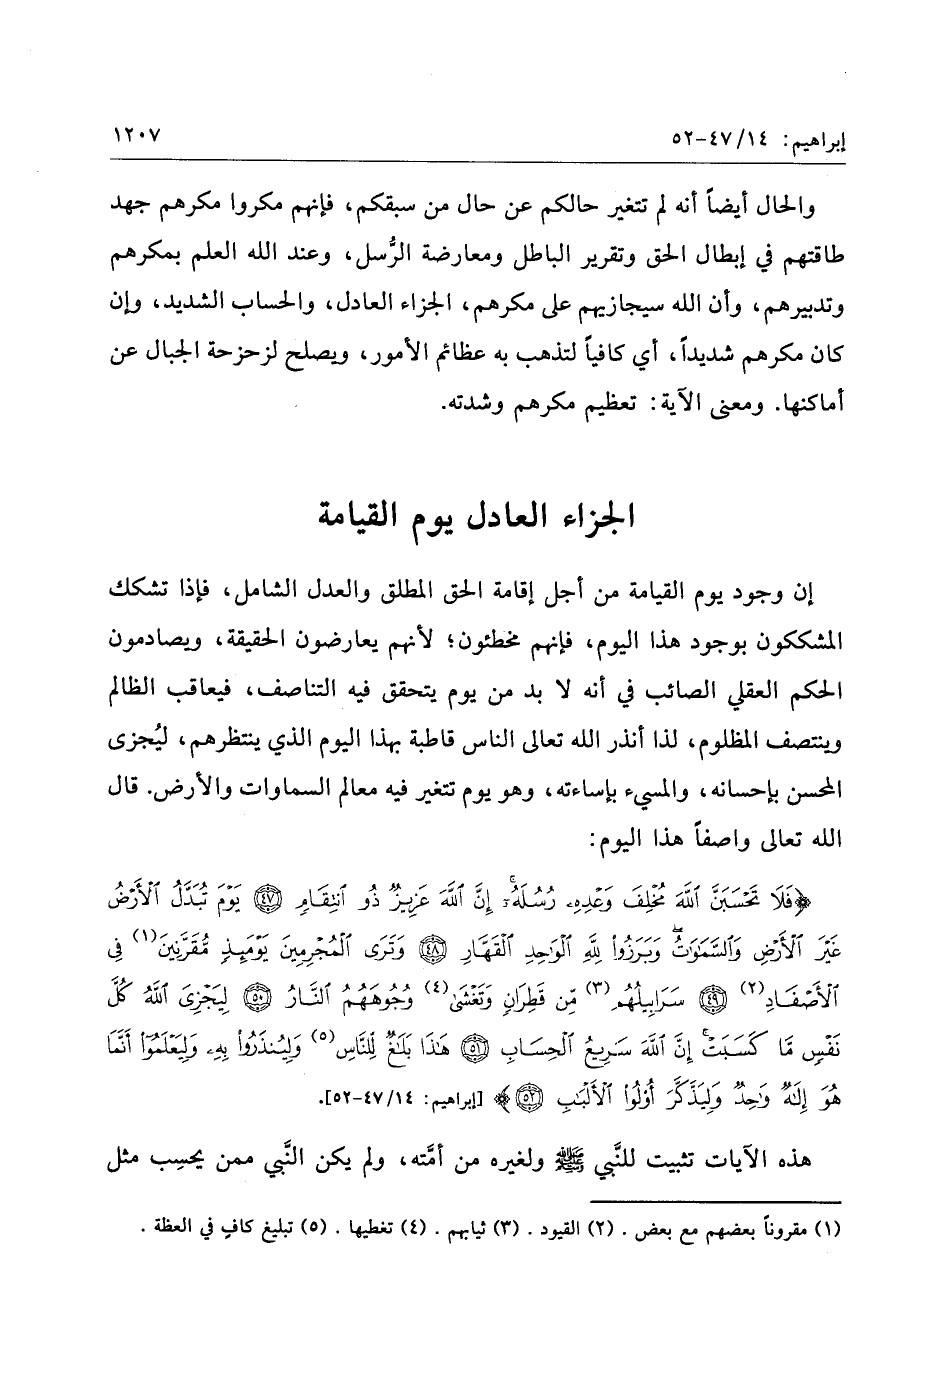 إبراهيم: ١٤/ ٤٧-٥٢ ١٢٠٧
والحال أيضاً أنه لم تتغير حالكم عن حال من سبقكم، فإنهم مكروا مكرهم جهد
طاقتهم في إبطال الحق وتقرير الباطل ومعارضة الرُّسل، وعند الله العلم بمكرهم
وتدبيرهم، وأن الله سيجازيهم على مكرهم، الجزاء العادل، والحساب الشديد، وإن
كان مكرهم شديداً، أي كافياً لتذهب به عظائم الأمور، ويصلح لزحزحة الجبال عن
أماكنها. ومعنى الآية: تعظيم مكرهم وشدته.
الجزاء العادل يوم القيامة
إن وجود يوم القيامة من أجل إقامة الحق المطلق والعدل الشامل، فإذا تشكك
المشككون بوجود هذا اليوم، فإنهم مخطئون؛ لأنهم يعارضون الحقيقة، ويصادمون
الحكم العقلي الصائب في أنه لا بد من يوم يتحقق فيه التناصف، فيعاقب الظالم
وينتصف المظلوم، لذا أنذر الله تعالى الناس قاطبة بهذا اليوم الذي ينتظرهم، ليُجزى
المحسن بإحسانه، والمسيء بإساءته، وهو يوم تتغير فيه معالم السماوات والأرض. قال
الله تعالى واصفاً هذا اليوم:
﴿فَلَا تَحْسَبَنَّ ٱللَّهَ مُخْلِفَ وَعْدِهِۦ رُسُلَهُۥٓۚ إِنَّ ٱللَّهَ عَزِيزٌ ذُو ٱنتِقَامٍ ٤٧ يَوْمَ تُبَدَّلُ ٱلْأَرْضُ
غَيْرَ ٱلْأَرْضِ وَٱلسَّمَٰوَٰتُۖ وَبَرَزُوا۟ لِلَّهِ ٱلْوَٰحِدِ ٱلْقَهَّارِ ٤٨ وَتَرَى ٱلْمُجْرِمِينَ يَوْمَئِذٍ مُّقَرَّنِينَ(١) فِى
ٱلْأَصْفَادِ(٢) ٤٩ سَرَابِيلُهُم(٣) مِّن قَطِرَانٍ وَتَغْشَىٰ(٤) وُجُوهَهُمُ ٱلنَّارُ ٥٠ لِيَجْزِىَ ٱللَّهُ كُلَّ
نَفْسٍ مَّا كَسَبَتْۚ إِنَّ ٱللَّهَ سَرِيعُ ٱلْحِسَابِ ٥١ هَٰذَا بَلَٰغٌ لِّلنَّاسِ(٥) وَلِيُنذَرُوا۟ بِهِۦ وَلِيَعْلَمُوٓا۟ أَنَّمَا
هُوَ إِلَٰهٌ وَٰحِدٌ وَلِيَذَّكَّرَ أُو۟لُوا۟ ٱلْأَلْبَٰبِ ٥٢﴾ [إبراهيم: ١٤/ ٤٧-٥٢].
هذه الآيات تثبيت للنَّبي ﷺ ولغيره من أمَّته، ولم يكن النَّبي ممن يحسِب مثل
(١) مقروناً بعضهم مع بعض . (٢) القيود . (٣) ثيابهم . (٤) تغطيها . (٥) تبليغ كافٍ في العظة .